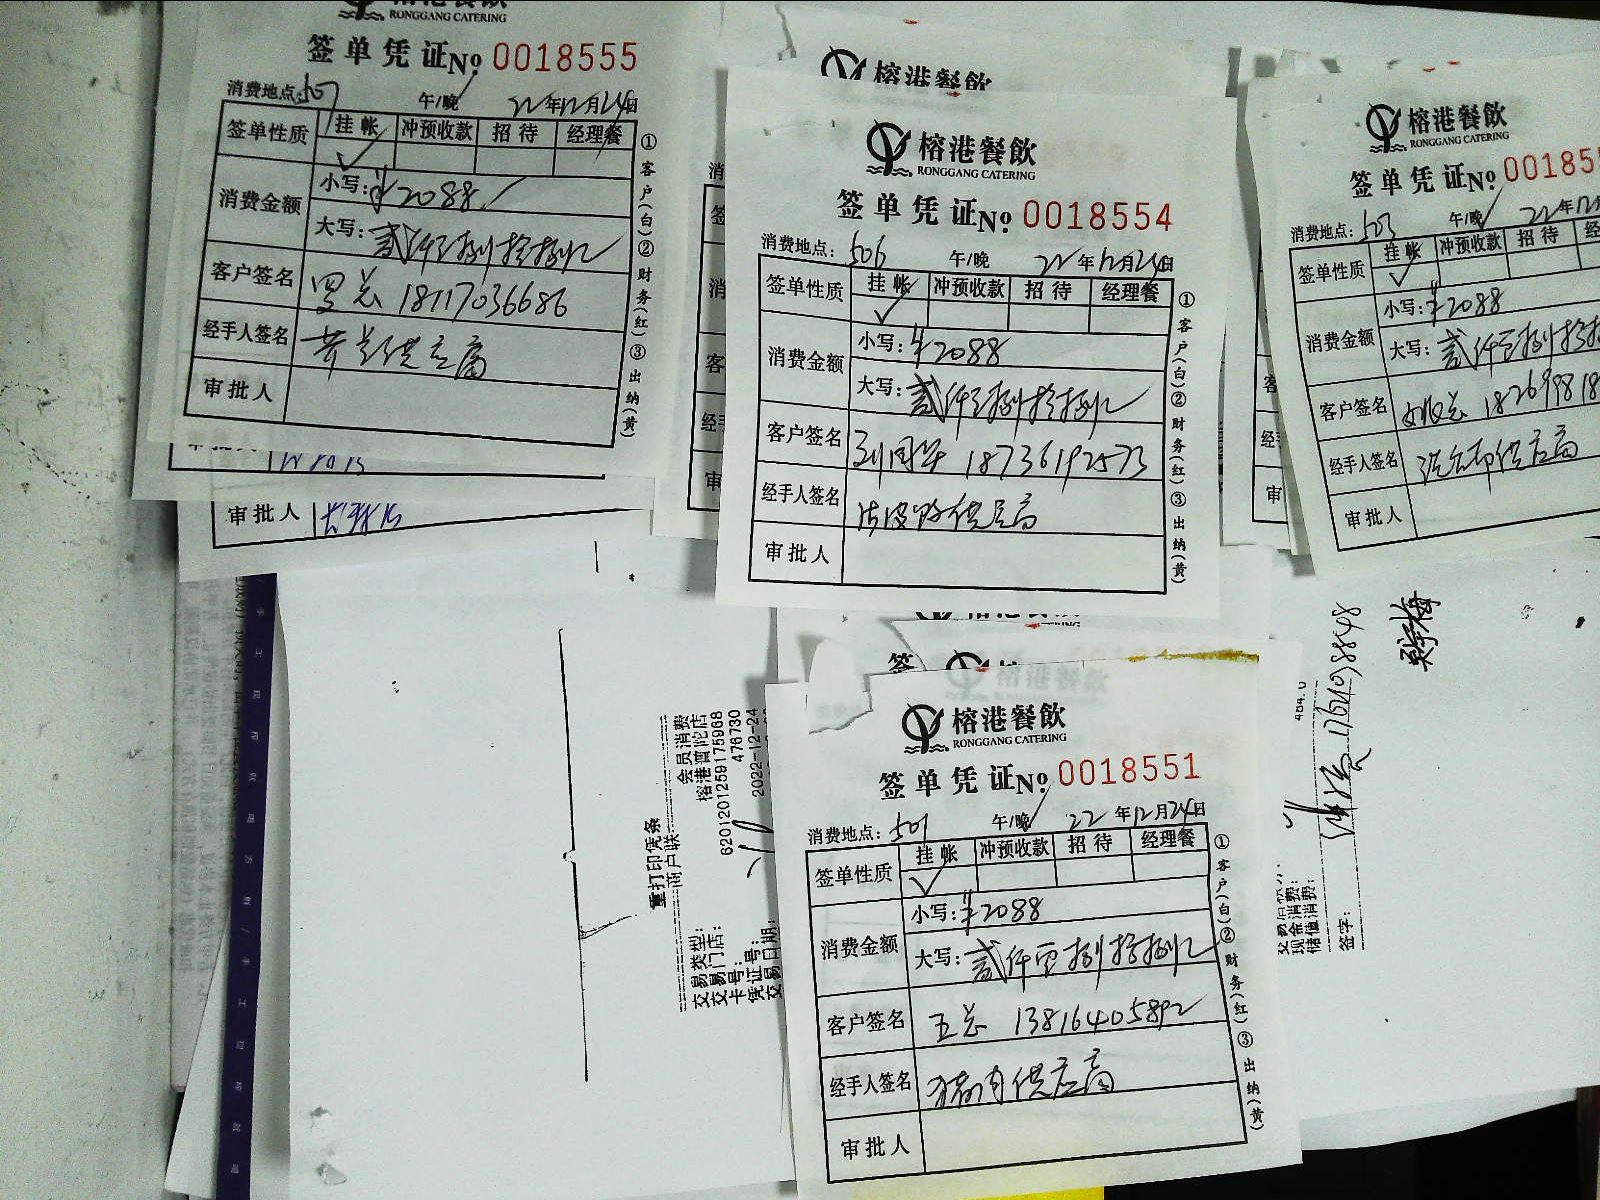 RONGGANG CATERING
签单凭证 No 0018555
消费地点: 507 午/晚 22年12月24日
签单性质 挂帐 冲预收款 招待 经理餐
消费金额 小写: ¥2088
大写: 贰仟零捌拾捌元
客户签名 罗总 18117036686
经手人签名 供应商
审批人
①客户(白)②财务(红)③出纳(黄)
审批人
榕港餐飲
榕港餐飲
RONGGANG CATERING
签单凭证 No 0018554
消费地点: 506 午/晚 22年12月24日
签单性质 挂帐 冲预收款 招待 经理餐
消费金额 小写: ¥2088
大写: 贰仟零捌拾捌元
客户签名 18736192573
经手人签名 供应商
审批人
①客户(白)②财务(红)③出纳(黄)
榕港餐飲
RONGGANG CATERING
签单凭证 No 00185
消费地点: 503 午/晚 22年12月
签单性质 挂帐 冲预收款 招待 经
消费金额 小写: ¥2088
大写: 贰仟零捌拾
客户签名 182699818
经手人签名 供应商
审批人
榕港餐飲
榕港餐飲
RONGGANG CATERING
签单凭证 No 0018551
消费地点: 501 午/晚 22年12月24日
签单性质 挂帐 冲预收款 招待 经理餐
消费金额 小写: ¥2088
大写: 贰仟零捌拾捌元
客户签名 王总 13816405892
经手人签名 猪肉供应商
审批人
①客户(白)②财务(红)③出纳(黄)
重打印凭条
商户联
交易类型: 会员消费
交易门店: 榕港普陀店
卡号: 6201201259175968
凭证号: 476730
交易日期: 2022-12-24
现金消费:
储值消费:
签字:
17640388548